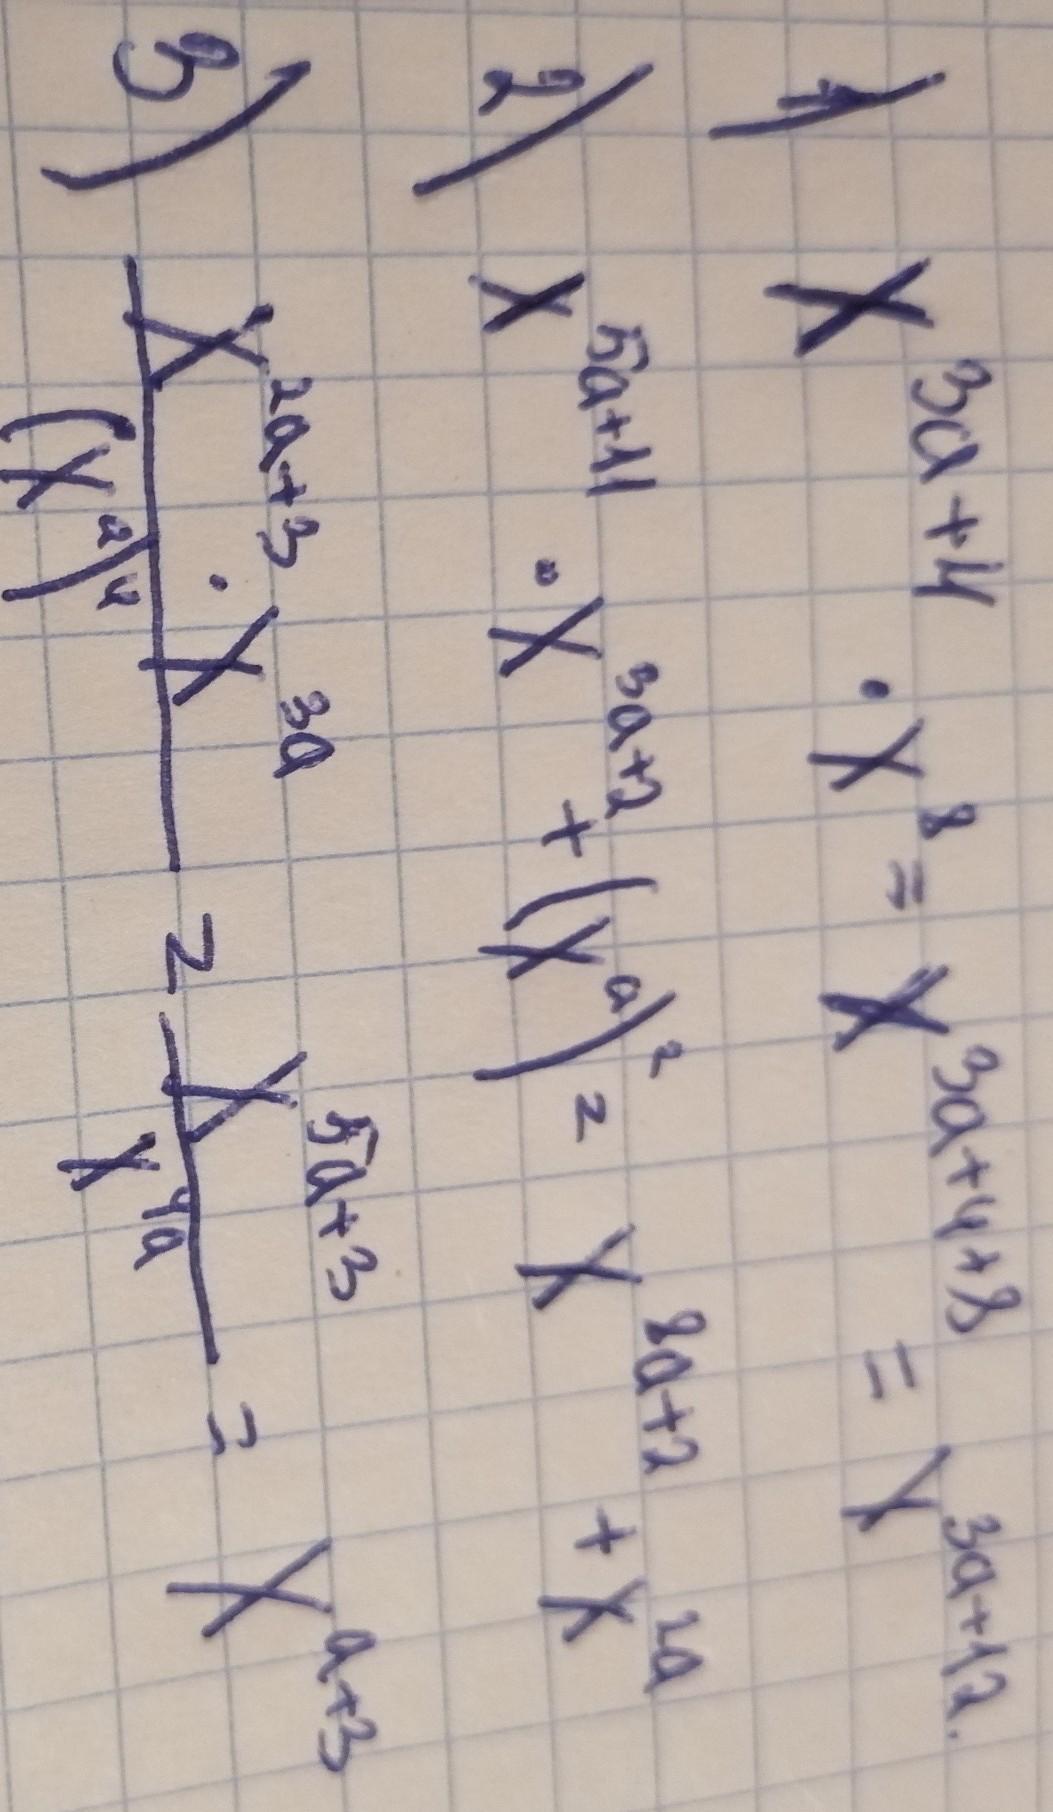 1) x^{3a+4} · x^8 = x^{3a+4+8} = x^{3a+12}.
2) x^{5a+11} · x^{3a+2} + (x^a)^2 = x^{8a+2} + x^{2a}
3) \frac{x^{2a+3} · x^{3a}}{(x^a)^4} = \frac{x^{5a+3}}{x^{4a}} = x^{a+3}